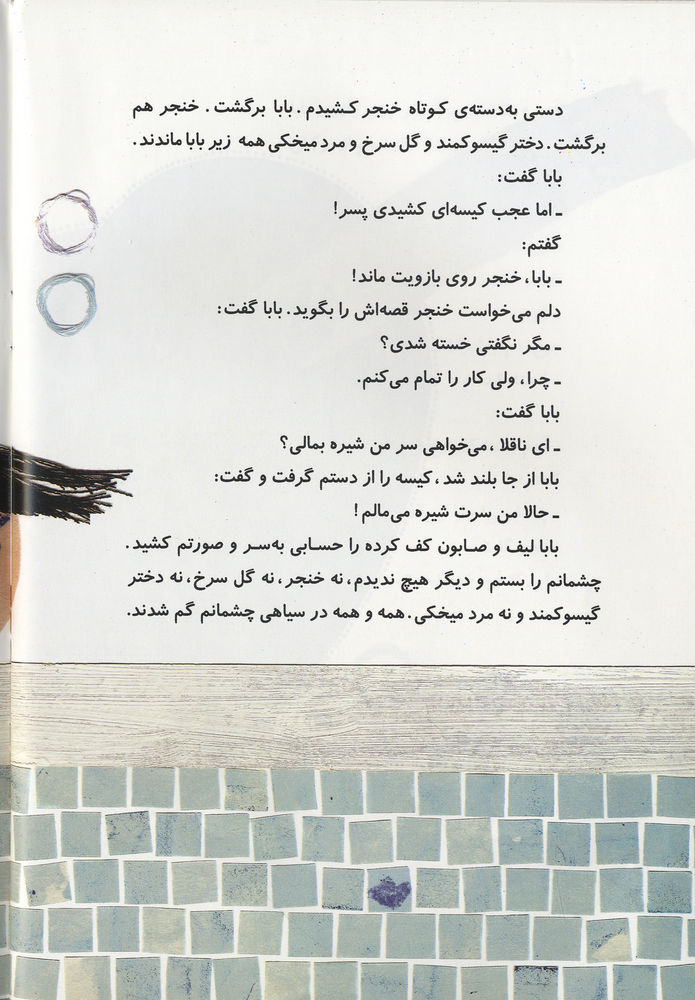 دستی به‌دسته‌ی کوتاه خنجر کشیدم. بابا برگشت. خنجر هم
برگشت. دختر گیسوکمند و گل سرخ و مرد میخکی همه زیر بابا ماندند.
بابا گفت:
ـ اما عجب کیسه‌ای کشیدی پسر!
گفتم:
ـ بابا، خنجر روی بازویت ماند!
دلم می‌خواست خنجر قصه‌اش را بگوید. بابا گفت:
ـ مگر نگفتی خسته شدی؟
ـ چرا، ولی کار را تمام می‌کنم.
بابا گفت:
ـ ای ناقلا، می‌خواهی سر من شیره بمالی؟
بابا از جا بلند شد، کیسه را از دستم گرفت و گفت:
ـ حالا من سرت شیره می‌مالم!
بابا لیف و صابون کف کرده را حسابی به‌سر و صورتم کشید.
چشمانم را بستم و دیگر هیچ ندیدم، نه خنجر، نه گل سرخ، نه دختر
گیسوکمند و نه مرد میخکی. همه و همه در سیاهی چشمانم گم شدند.